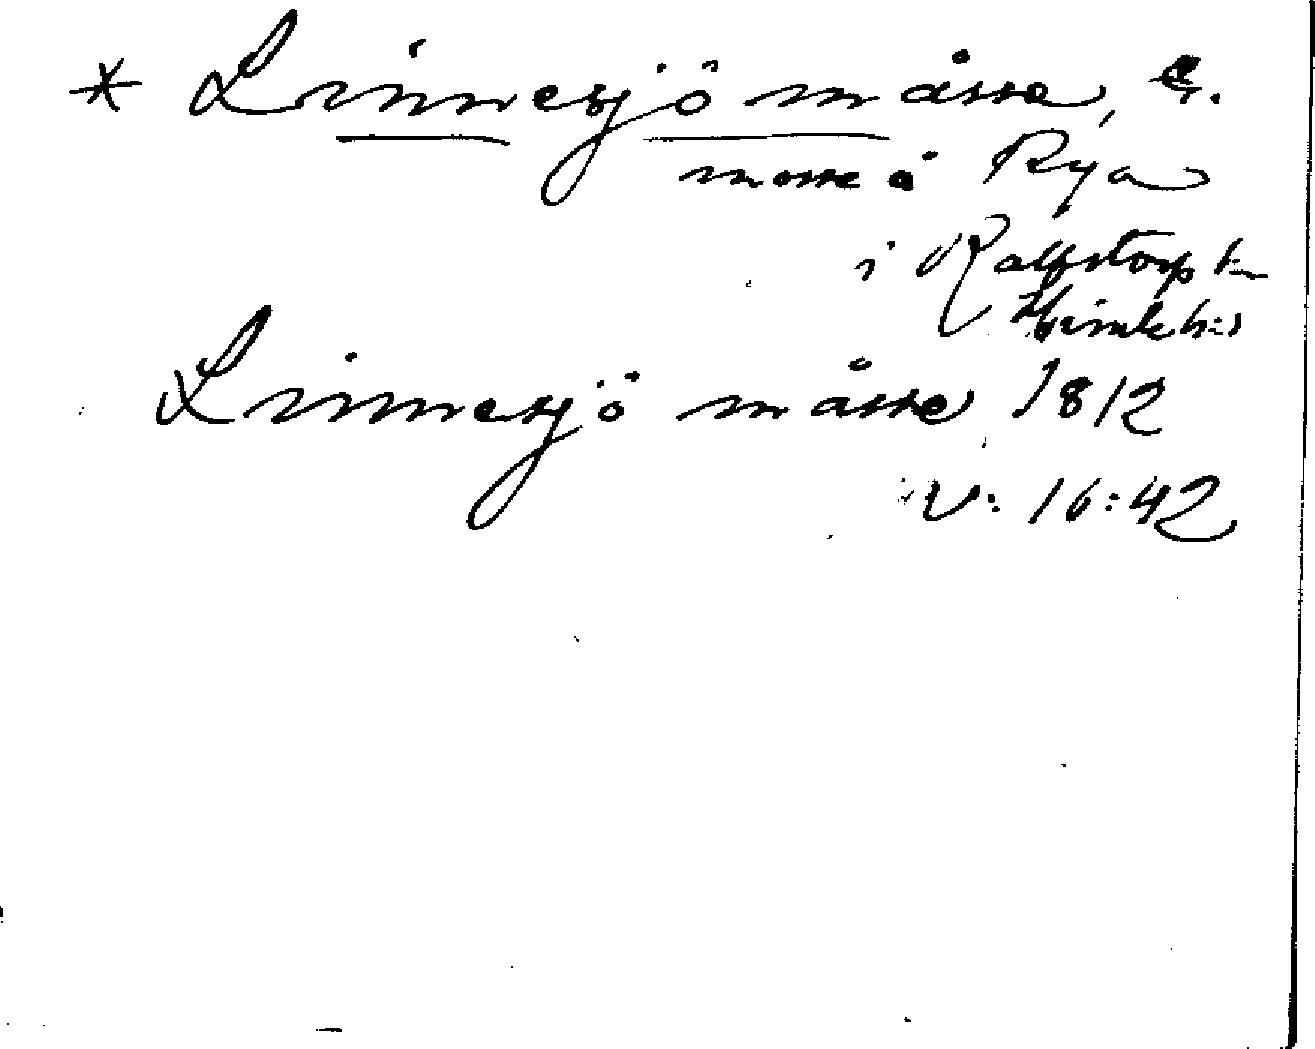 * Linnesjö måsse,
mosse å Rya
i Rolfstorp
Himle h:d
Linnesjö måsse 1812
V: 16:42